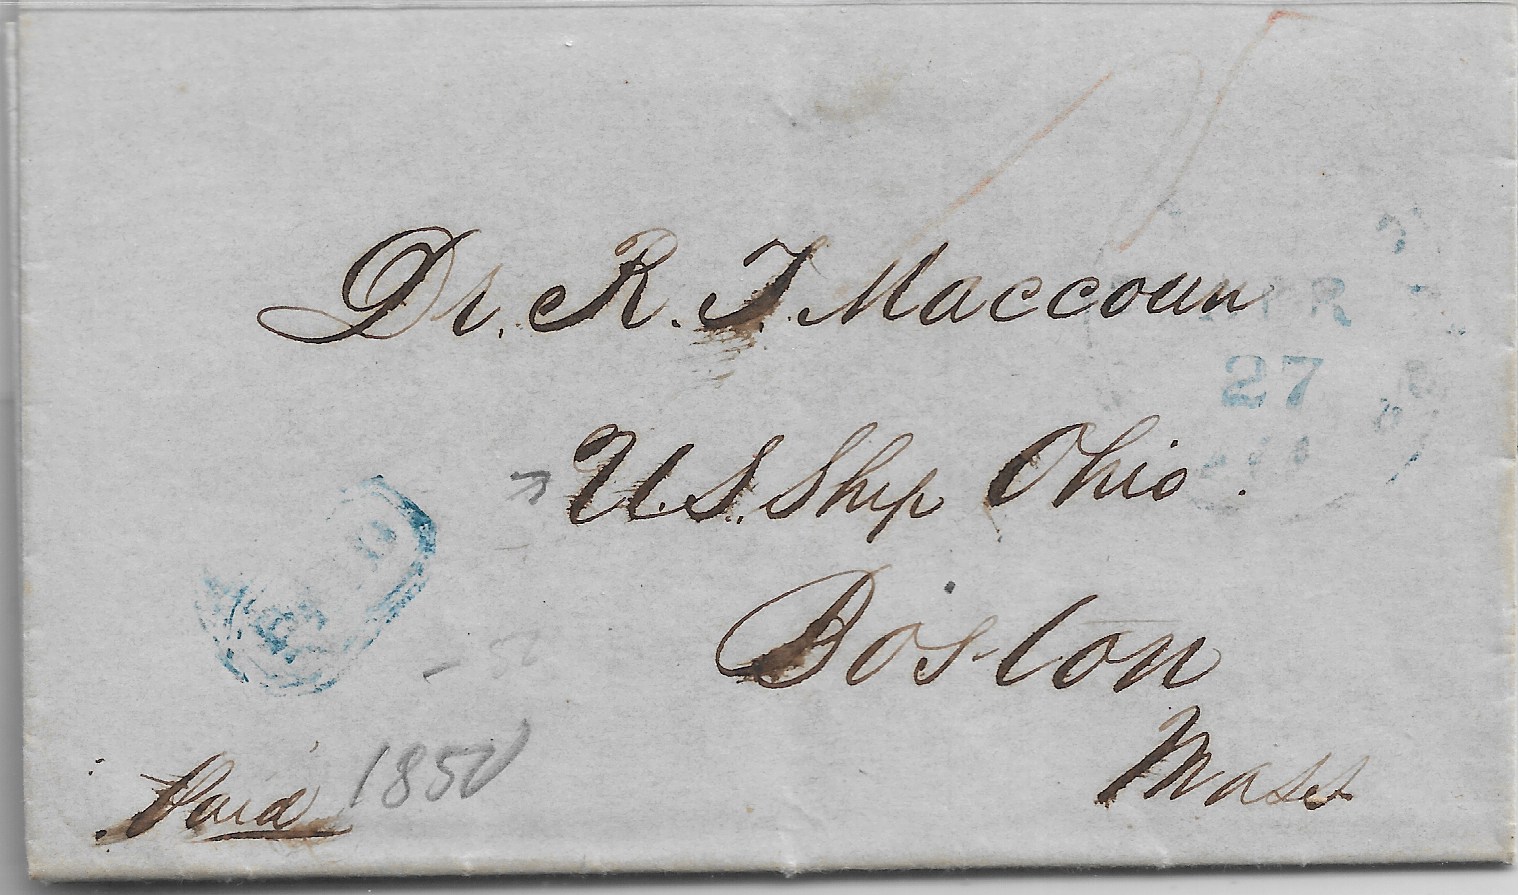 Dr. R. T. Maccoun
APR
27
U.S. Ship Ohio.
PAID
Boston
Mass
Paid
1850